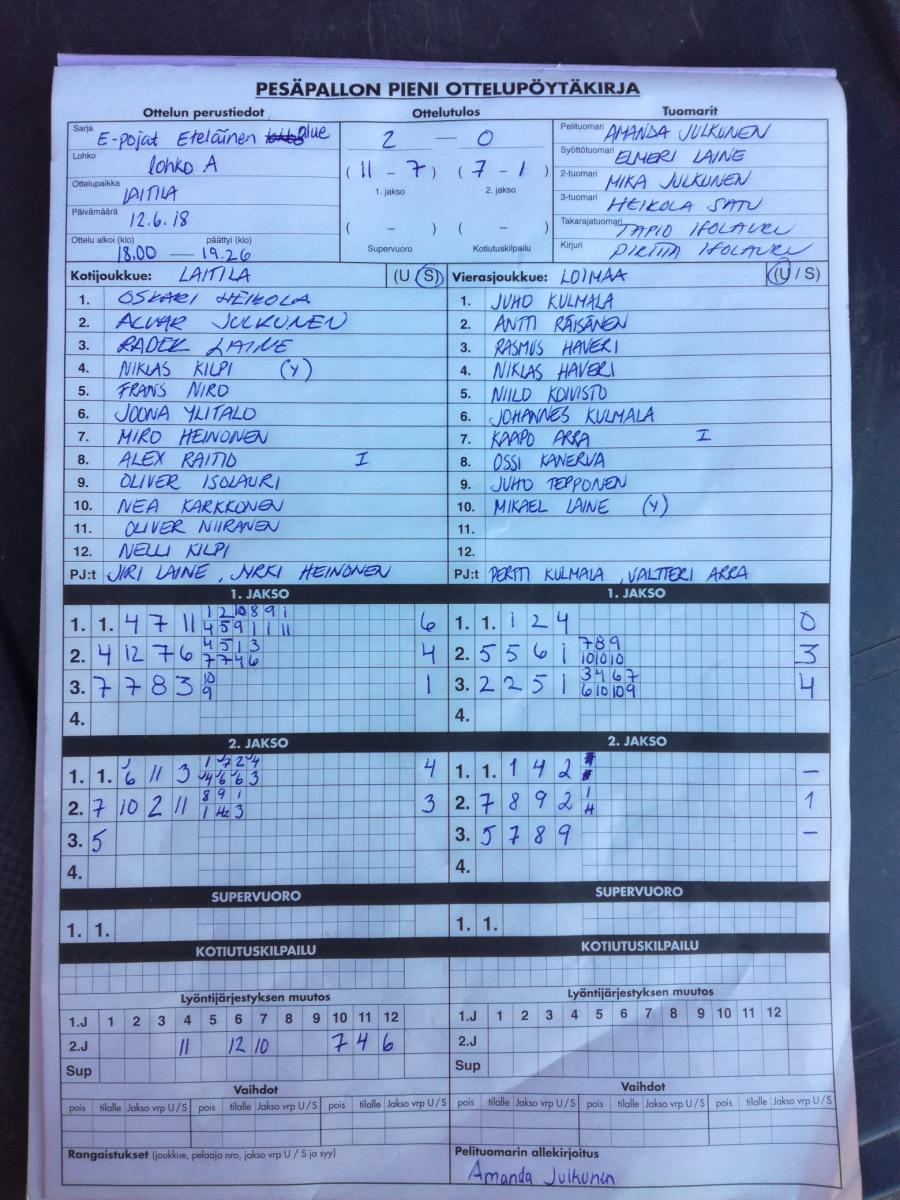 PESÄPALLON PIENI OTTELUPÖYTÄKIRJA
Ottelun perustiedot Ottelutulos Tuomarit
Sarja E-pojat Eteläinen alue
Lohko lohko A
Ottelupaikka LAITILA
Päivämäärä 12.6.18
Ottelu alkoi (klo) päättyi (klo)
18.00 — 19.26
2 — 0
( 11 - 7 ) ( 7 - 1 )
1. jakso 2. jakso
( - ) ( - )
Supervuoro Kotiutuskilpailu
Pelituomari AMANDA JULKUNEN
Syöttötuomari ELMERI LAINE
2-tuomari MIKA JULKUNEN
3-tuomari HEIKOLA SATU
Takarajatuomari TAPIO ISOLAURI
Kirjuri PIRITTA ISOLAURI
Kotijoukkue: LAITILA (U / S)
1. OSKARI HEIKOLA
2. ALVAR JULKUNEN
3. RADEK LAINE
4. NIKLAS KILPI (Y)
5. FRANS NIRO
6. JOONA YLITALO
7. MIRO HEINONEN
8. ALEX RAITIO I
9. OLIVER ISOLAURI
10. NEA KARKKONEN
11. OLIVER NIIRANEN
12. NELLI KILPI
PJ:t JIRI LAINE, JYRKI HEINONEN
Vierasjoukkue: LOIMAA (U / S)
1. JUHO KULMALA
2. ANTTI RÄISÄNEN
3. RASMUS HAVERI
4. NIKLAS HAVERI
5. NIILO KOIVISTO
6. JOHANNES KULMALA
7. KAAPO ARRA I
8. OSSI KANERVA
9. JUHO TEPPONEN
10. MIKAEL LAINE (Y)
11.
12.
PJ:t PERTTI KULMALA, VALTTERI ARRA
1. JAKSO
1. 1. 4 7 11 1 2 10 8 9 1 6
4 5 9 1 1 11
2. 4 12 7 6 4 5 1 3 4
7 7 4 6
3. 7 7 8 3 10 1
9
4.
1. JAKSO
1. 1. 1 2 4 0
2. 5 5 6 1 7 8 9 3
10 10 10
3. 2 2 5 1 3 4 6 7 4
6 10 10 9
4.
2. JAKSO
1. 1. 6 11 3 1 7 2 4 4
4 6 6 3
2. 7 10 2 11 8 9 1 3
1 3
3. 5
4.
2. JAKSO
1. 1. 1 4 2 –
2. 7 8 9 2 1 1
4
3. 5 7 8 9 –
4.
SUPERVUORO
1. 1.
SUPERVUORO
1. 1.
KOTIUTUSKILPAILU
KOTIUTUSKILPAILU
Lyöntijärjestyksen muutos
1.J 1 2 3 4 5 6 7 8 9 10 11 12
2.J 11 12 10 7 4 6
Sup
Lyöntijärjestyksen muutos
1.J 1 2 3 4 5 6 7 8 9 10 11 12
2.J
Sup
Vaihdot
pois tilalle Jakso vrp U / S pois tilalle Jakso vrp U / S pois tilalle Jakso vrp U / S
Vaihdot
pois tilalle Jakso vrp U / S pois tilalle Jakso vrp U / S pois tilalle Jakso vrp U / S
Rangaistukset (joukkue, pelaaja nro, jakso vrp U / S ja syy)
Pelituomarin allekirjoitus
Amanda Julkunen